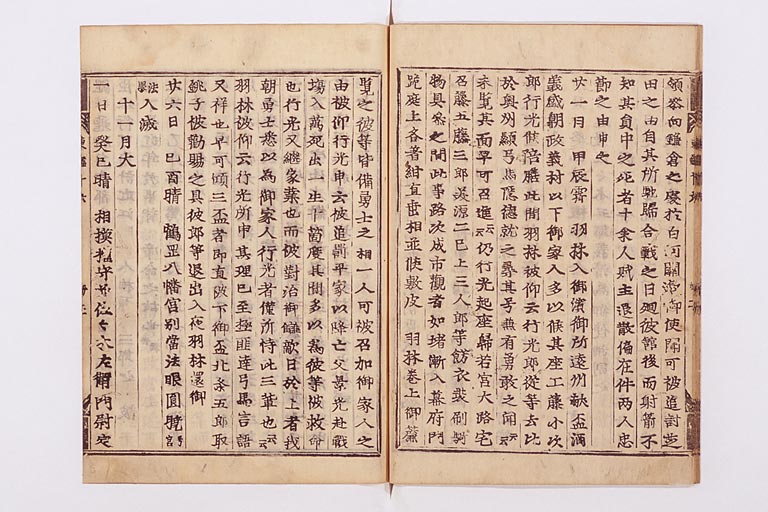 領參向鎌倉之處於白河關 御使聞可被追討芝
田之由自其所馳歸合戰之日廻彼舘後而射箭不
知其員中之死者十余人賊主退散偏在件兩人忠
節之由申之
廿一日 甲辰霽羽林入御濱御所遠州献盃酒
義盛朝政義村以下御家人多以候其座工藤小次
郎行光候陪膳此間羽林被仰云行光郎從等去比
於奥州顯弓馬隱德就之尋其号無有勇敢之聞云々
未覧其面早可召進云々仍行光起座歸若宮大路宅
召藤五藤三郎美源二已上三人郎等餝衣裝刷
物具悉之間此事路次成市觀者如堵漸入幕府門
跪庭上各著紺直垂相並候敷皮 羽林巻上御簾
覧之彼等皆備勇士之相一人可被召加御家人之
由被仰行光申云被追罸平家以降亡父景光赴戰
塲入萬死出一生十箇度其間多以爲彼等被救命
也行光又繼家業也而彼對治御讎敵日於上者我
朝勇士悉以爲御家人行光者僅所恃此三輩也云々
羽林被仰云行光所申其理已至極匪達弓馬言語
又祥也早可傾三盃者即直被下御盃北条五郎取
銚子被勸賜之具彼郎等退出入夜羽林還御
廿六日 己酉晴鶴罡八幡宮別當法眼圓曉
入滅
十一月大
一日 癸巳晴 相摸權守 左衛門尉定